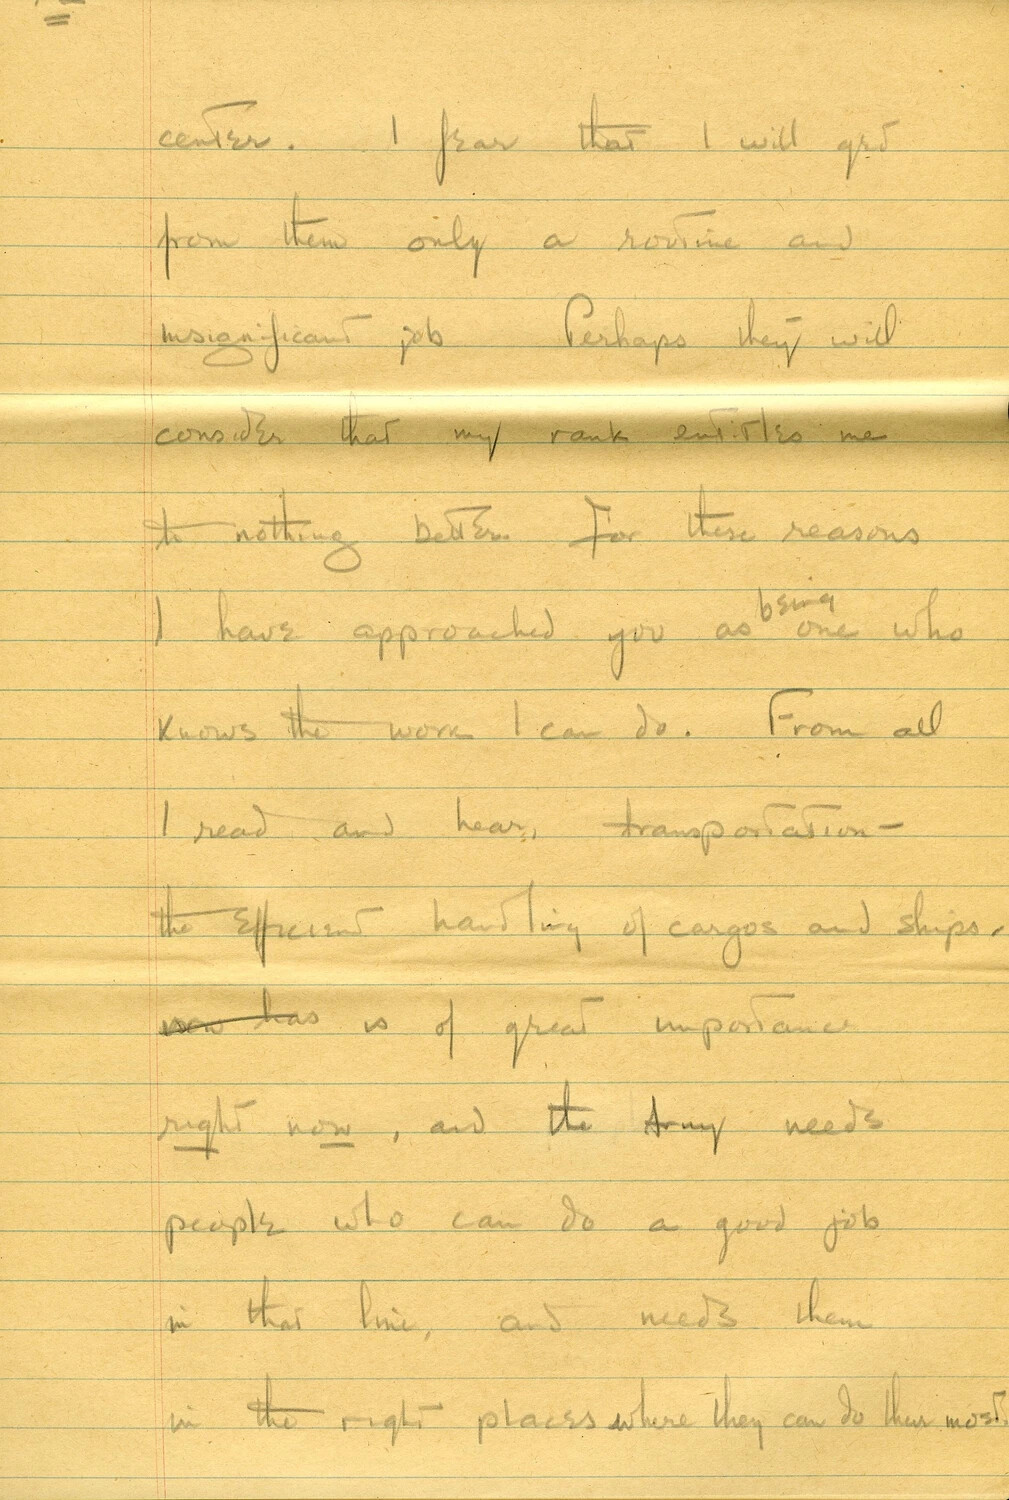 center. I fear that I will get
from them only a routine and
insignificant job Perhaps they will
consider that my rank entitles me
to nothing better. For these reasons
I have approached you as being one who
knows the work I can do. From all
I read and hear, transportation—
the efficient handling of cargos and ships.
now has is of great importance
right now, and the Army needs
people who can do a good job
in that line, and needs them
in the right places where they can do their most